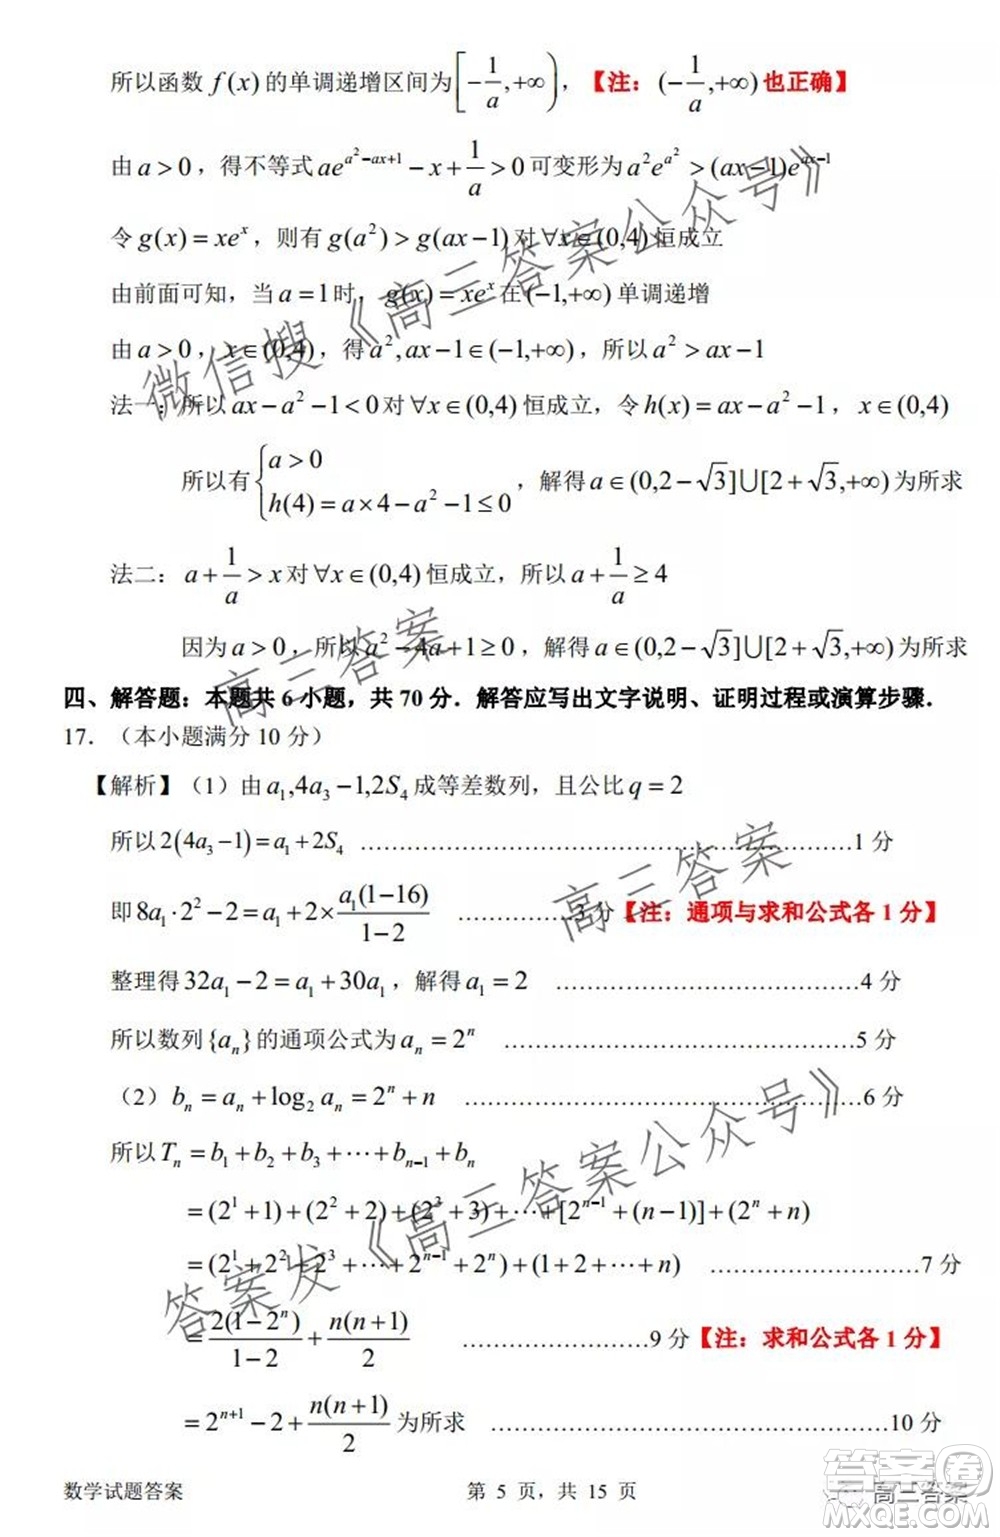 所以函数 f(x) 的单调递增区间为[-1/a,+∞)，【注：(-1/a,+∞)也正确】
由 a>0，得不等式 ae^{a^2-ax+1}-x+1/a>0 可变形为 a^2e^{a^2}>(ax-1)e^{ax-1}
令 g(x)=xe^x，则有 g(a^2)>g(ax-1)对∀x∈(0,4)恒成立
由前面可知，当 a=1时，g(x)=xe^x在(-1,+∞)单调递增
由 a>0，x∈(0,4)，得 a^2,ax-1∈(-1,+∞)，所以 a^2>ax-1
法一：所以 ax-a^2-1<0对∀x∈(0,4)恒成立，令 h(x)=ax-a^2-1，x∈(0,4)
所以有{a>0
h(4)=a×4-a^2-1≤0，解得 a∈(0,2-√3]∪[2+√3,+∞)为所求
法二：a+1/a>x对∀x∈(0,4)恒成立，所以 a+1/a≥4
因为 a>0，所以 a^2-4a+1≥0，解得 a∈(0,2-√3]∪[2+√3,+∞)为所求
四、解答题：本题共 6 小题，共 70 分．解答应写出文字说明、证明过程或演算步骤．
17．（本小题满分 10 分）
【解析】（1）由 a_1,4a_3-1,2S_4成等差数列，且公比 q=2
所以 2(4a_3-1)=a_1+2S_4 ……………………1 分
即 8a_1·2^2-2=a_1+2×a_1(1-16)/(1-2) …………3 分【注：通项与求和公式各 1 分】
整理得 32a_1-2=a_1+30a_1，解得 a_1=2 ……………………4 分
所以数列{a_n}的通项公式为 a_n=2^n ……………………5 分
（2）b_n=a_n+log_2 a_n=2^n+n ……………………6 分
所以 T_n=b_1+b_2+b_3+⋯+b_{n-1}+b_n
=(2^1+1)+(2^2+2)+(2^3+3)+⋯+[2^{n-1}+(n-1)]+(2^n+n)
=(2^1+2^2+2^3+⋯+2^{n-1}+2^n)+(1+2+⋯+n) …………7 分
=2(1-2^n)/(1-2)+n(n+1)/2 …………9 分【注：求和公式各 1 分】
=2^{n+1}-2+n(n+1)/2 为所求 ……………………10 分
数学试题答案 第 5 页，共 15 页
微信搜《高三答案公众号》
高三答案
高三答案
答案发《高三答案公众号》
高三答案
答案圈
MXQE.COM